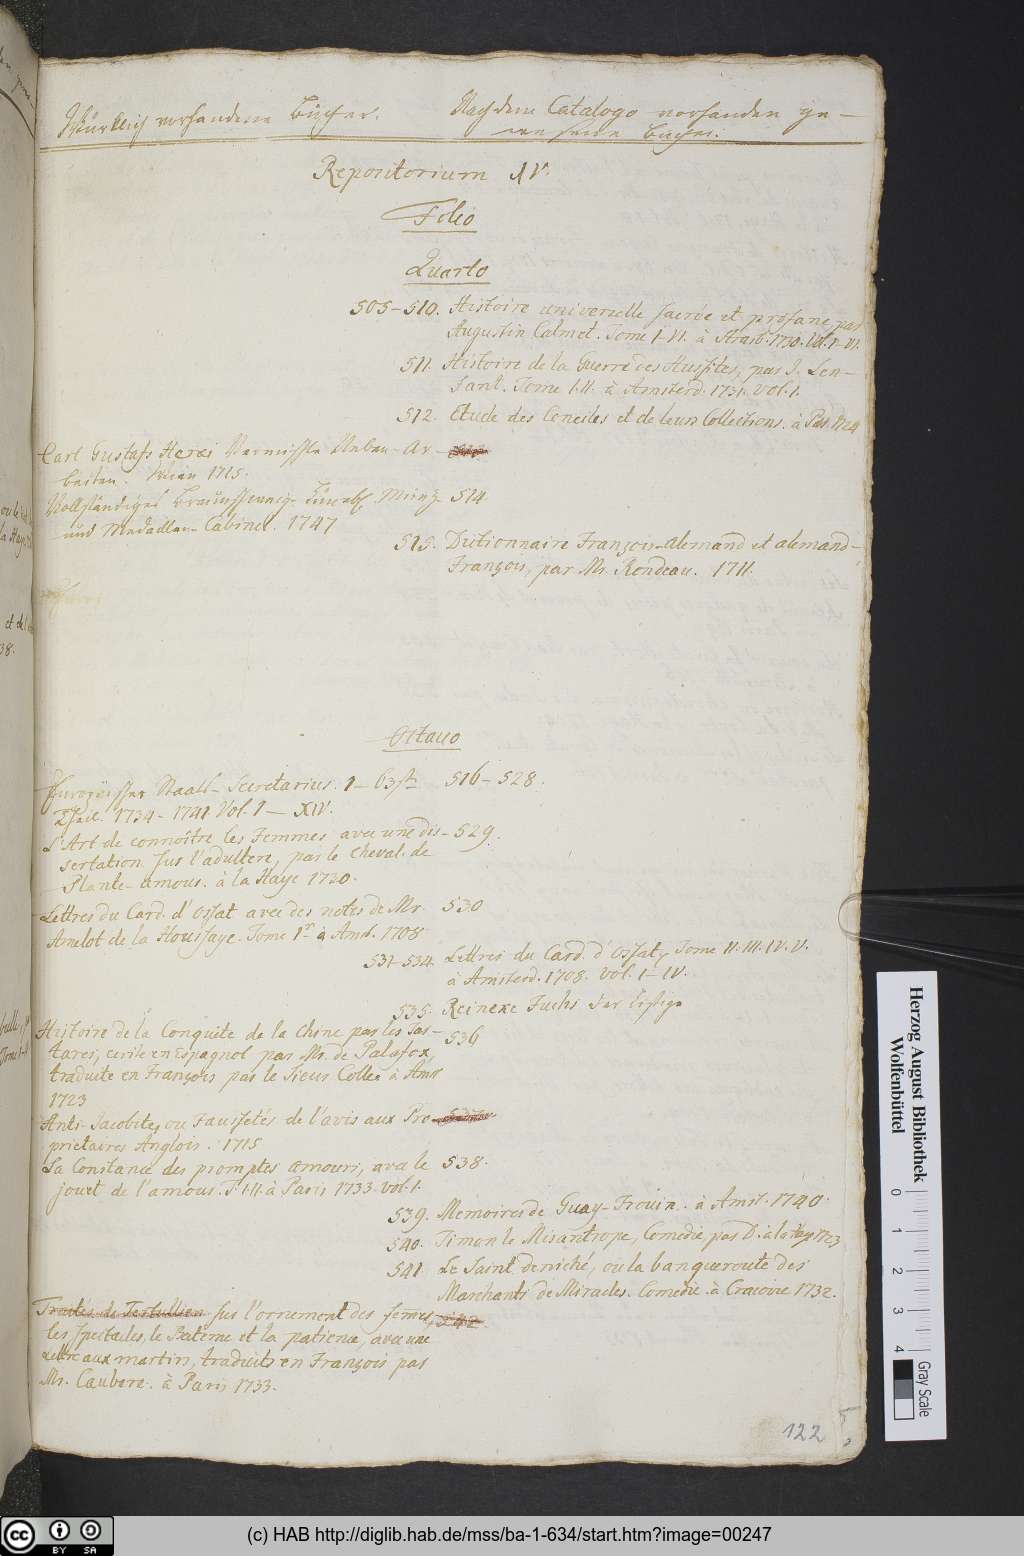 Würklich vorhandene Bücher.
Nach dem Catalogo vorhanden ge-
wesene Bücher.
Repositorium XV.
Folio
Quarto
505-510. Histoire universelle sacrée et profane par
Augustin Calmet. Tome I-VI. à Strasb. 1730. Vol. I-VI.
511. Histoire de la Guerre des Hussites, par J. Len-
fant. Tome I.II. à Amsterd. 1731. Vol. I.
512. Etude des Conciles et de leurs Collections. à Par. 1724
Carl Gustafs Heraei Vermischte Neben-Ar- 513
beiten. Wien 1715.
Vollständiges Braunschweig-Lüneb. Münz- 514
und Medaillen-Cabinet. 1747
515. Dictionnaire François-alemand et alemand-
François, par Mr. Rondeau. 1711.
Octavo
Europäischer Staats-Secretarius. 1-63ster 516-528.
Theil. 1734-1741 Vol. I-XIV.
L'Art de connoître les Femmes avec une dis- 529.
sertation sur l'adultere, par le Cheval. de
Plante-amour. à la Haye 1730.
Lettres du Card. d'Ossat avec des notes de Mr. 530
Amelot de la Houssaye. Tome 1r à Amst. 1708
531-534. Lettres du Card. d'Ossat, Tome II. III. IV. V.
à Amsterd. 1708. Vol. I-IV.
535. Reineke Fuchs der listige
Histoire de la Conquête de la Chine par les Tar- 536
tares, ecrite en Espagnol par Mr. de Palafox,
traduite en François par le Sieur Colle à Amst
1723
Anti-Jacobite, ou Faussetés de l'avis aux Pro-
prietaires Anglois. 1715
La Constance des promptes amours, avec le 538.
jouet de l'amour. T. I.II. à Paris 1733. vol. I.
539. Memoires de Guay-Trouin. à Amst. 1740.
540. Timon le Misantrope, Comedie par D. à la Haye 1723
541. Le Saint deniché, ou la banqueroute des
Marchands de Miracles. Comedie. à Cracovie 1732.
Traités de Tertullien sur l'ornement des femmes, 542
les spectacles, le Bateme et la patience, avec une
Lettre aux martirs, traduits en François par
Mr. Caubere. à Paris 1733.
122
Herzog August Bibliothek
Wolfenbüttel
0 1 2 3 4
Gray Scale
cc BY SA
(c) HAB http://diglib.hab.de/mss/ba-1-634/start.htm?image=00247